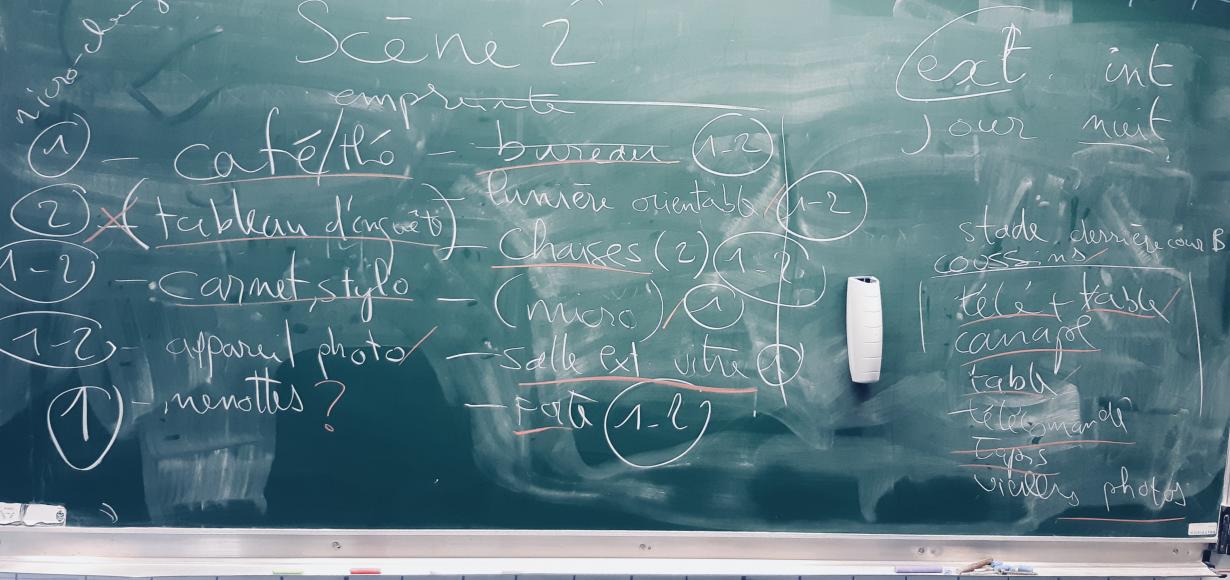 Scène 2
empreinte
micro-
① - café/thé
② (tableau d'enquêt)
1-2 - carnet, stylo
1-2 - appareil photo
1 - menottes ?
- bureau 1-2
- lumière orientable 1-2
- Chaises (2) 1-2
- (micro) 1
- salle ext vitre 1
- porte 1-2
ext. int
jour nuit
stade derrière cour B
coussins
télé + table
canapé
table
télécomande
tapis
vieilles photos